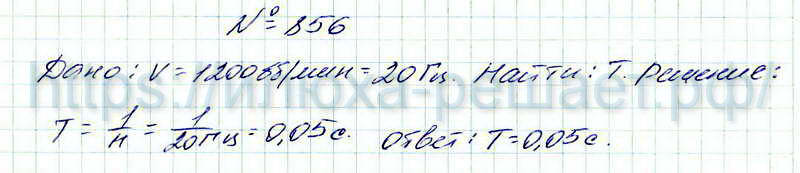 № 856
Дано: ν = 1200 об/мин = 20 Гц. Найти: T. Решение:
https://илюха-решает.рф/
T = 1/н = 1/20 Гц = 0,05 с. Ответ: T = 0,05 с.